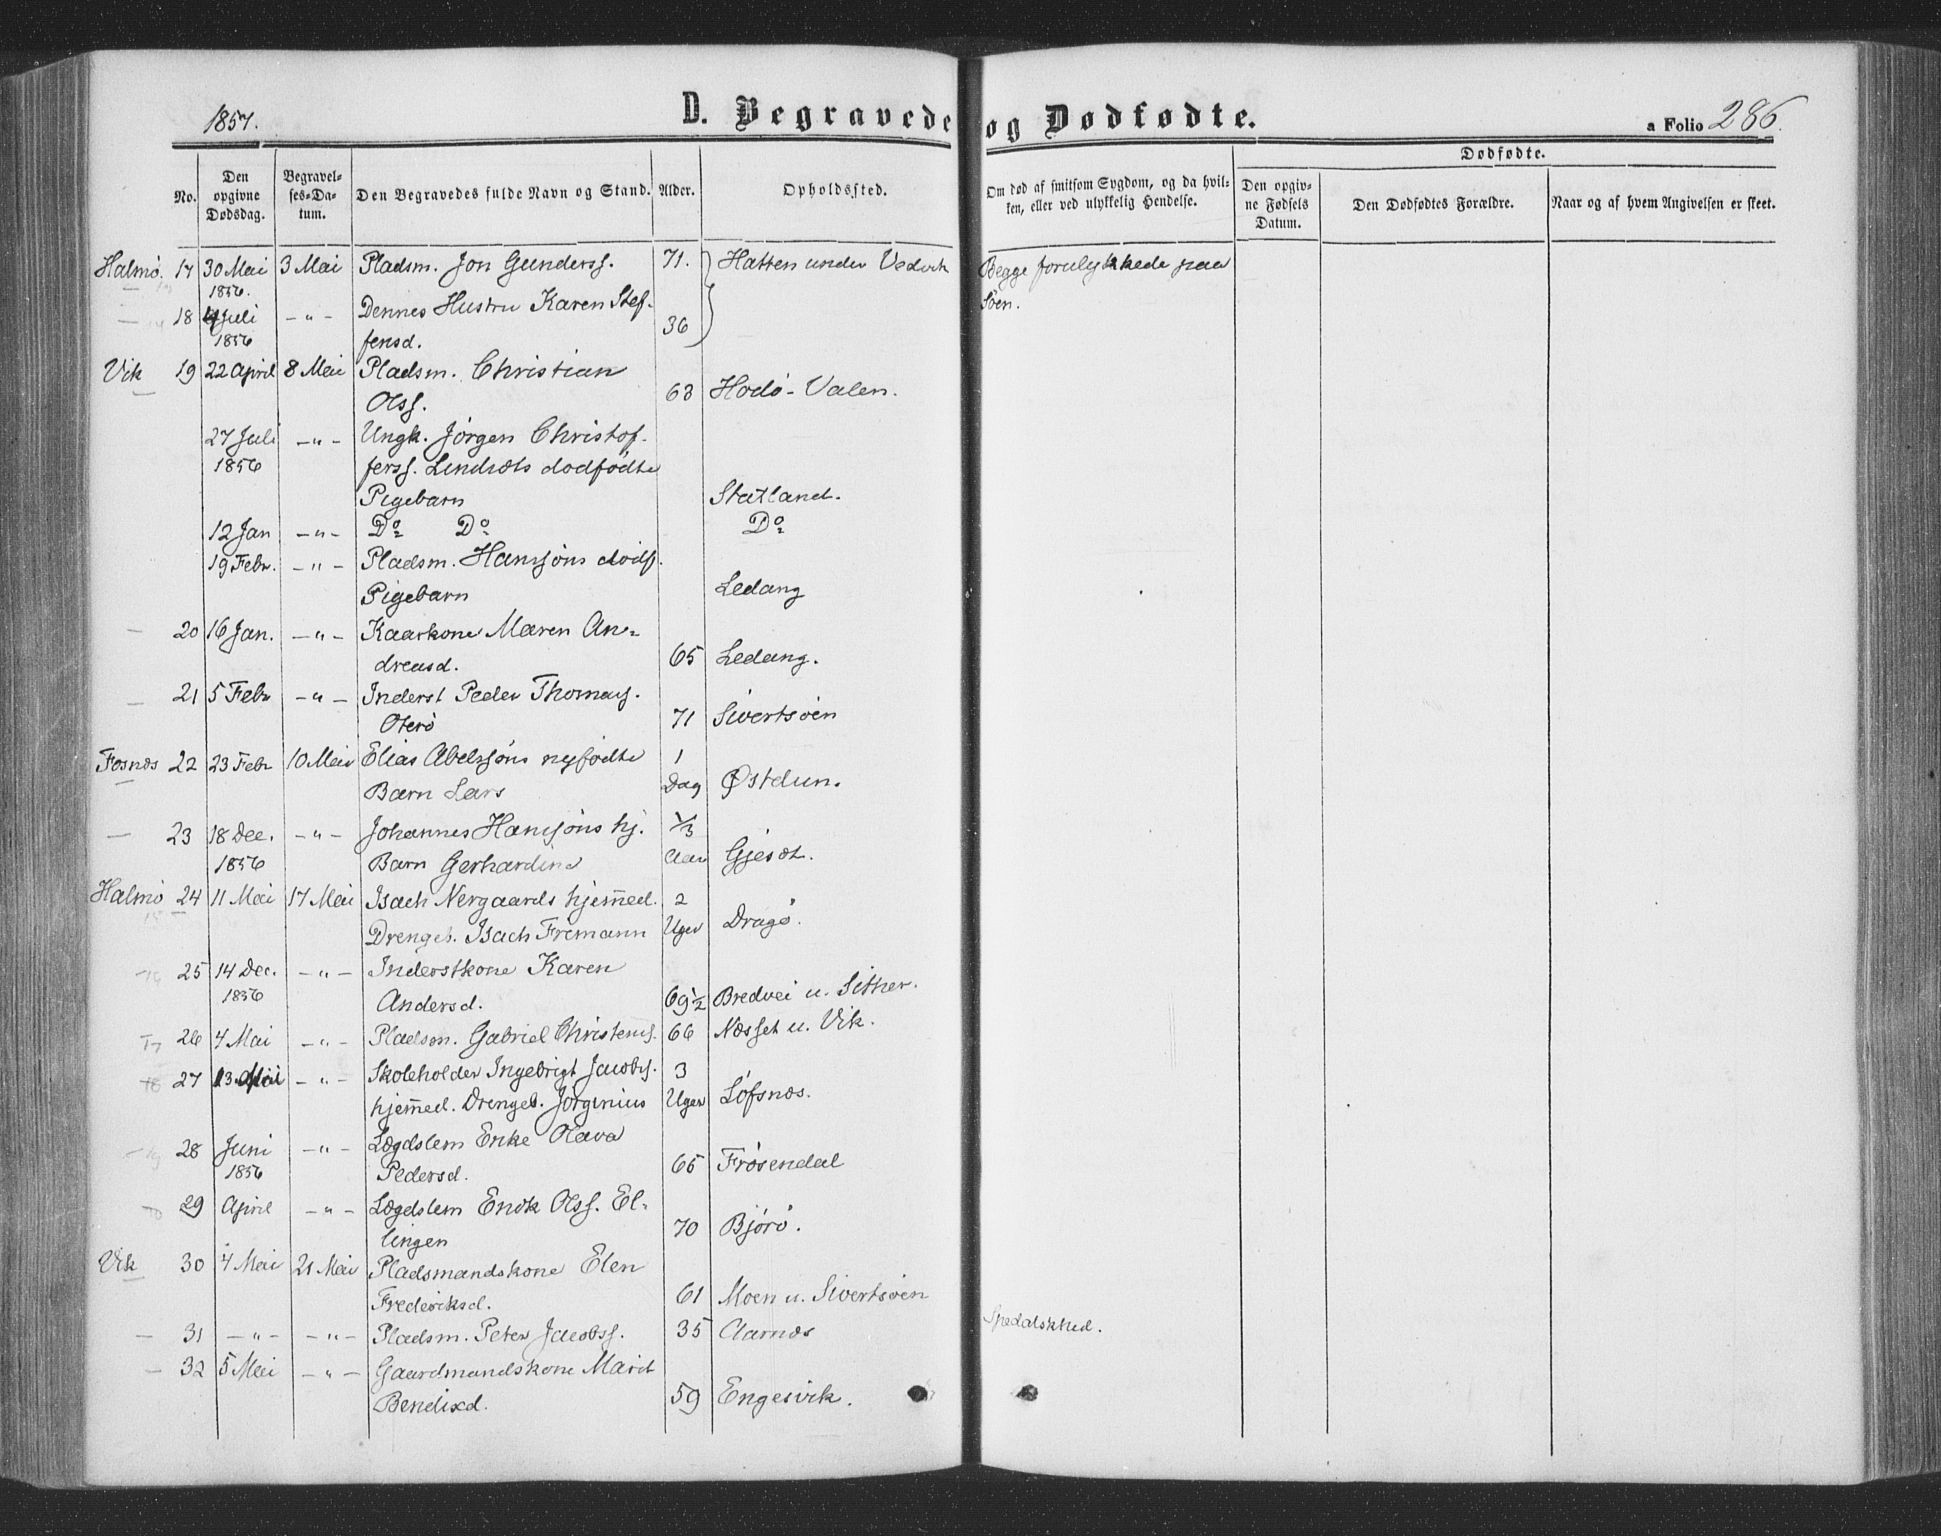 1857. D. Begravede og Dødfødte. a Folio 286.
No. Den opgivne Dødsdag. Begravelses-Datum. Den Begravedes fulde Navn og Stand. Alder. Opholdssted. Om død af smitsom Sygdom, og da hvilken, eller ved ulykkelig Hendelse. Dødfødte. Den opgivne Fødsels Datum. Den Dødfødtes Forældre. Naar og af hvem Angivelsen er skeet.
Halmø. 17 30 Mai 3 Mai Pladsm. Jon Gunderss. 71. Hatten under Vedvik Begge forulykkede paa
1856. Søen.
18 4 Juli - " - Dennes Hustru Karen Stef-
1856 fensd. 36
Vik 19 22 April 8 Mai Pladsm. Christian
Olss. 63 Hodø-Valen.
27 Juli - " - Ungk. Jørgen Christof-
1856 ferss. Lindsæts dødfødte
Pigebarn Statland.
12 Jan - " - Do Do Do
19 Febr. - " - Pladsm. Hansjøns dødf.
Pigebarn Ledang
20 16 Jan. - " - Kaarkone Maren An-
dreasd. 65 Ledang.
21 5 Febr - " - Inderst Peder Thomass.
Oterø 71 Sivertsøen
Fosnæs 22 23 Febr 10 Mai Elias Abelsjøns nyfødte 1
Barn Lars Dag Østdun.
23 18 Dec. - " - Johannes Hansjøns hj. 1/3
1856 Barn Gerhardine Aar Gjesæt.
Halmø 24 11 Mai 17 Mai Isach Nergaards hjemmed. 2
Drengeb. Isach Fremann Uger Dragø.
25 14 Dec. - " - Inderstkone Karen
1856 Andersd. 69½ Bredvei u. Sitter.
26 4 Mai - " - Pladsm. Gabriel Christens. 66 Næsset u. Vik.
27 13 Mai - " - Skoleholder Ingebrigt Jacobs. 3
hjemmed. Drengeb. Jørginius Uger Løfsnæs.
28 Juni - " - Lægdslem Enke Olava
1856 Pedersd. 65 Frøsendal
29 April - " - Lægdslem Erik Olss. El-
lingen 70 Bjørø.
Vik 30 4 Mai 21 Mai Pladsmandskone Elen
Frederiksd. 61 Moen u. Sivertsøen
31 - " - - " - Pladsm. Peter Jacobss. 35 Aarnæs Spedalskhed.
32 5 Mai - " - Gaardmandskone Marit
Bendixd. 59 Engesvik.